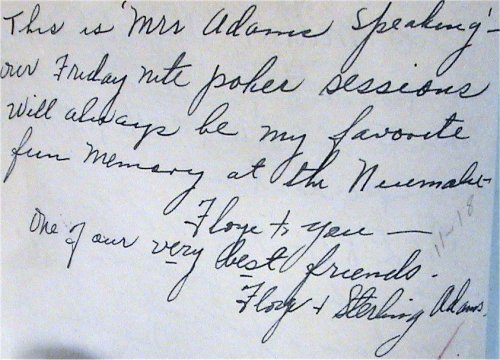 This is "Mrs Adams Speaking" -
our Friday nite poker sessions
will always be my favorite
fun memory at the
to you —
One of our very best friends.
+ Sterling Adams.
11-18